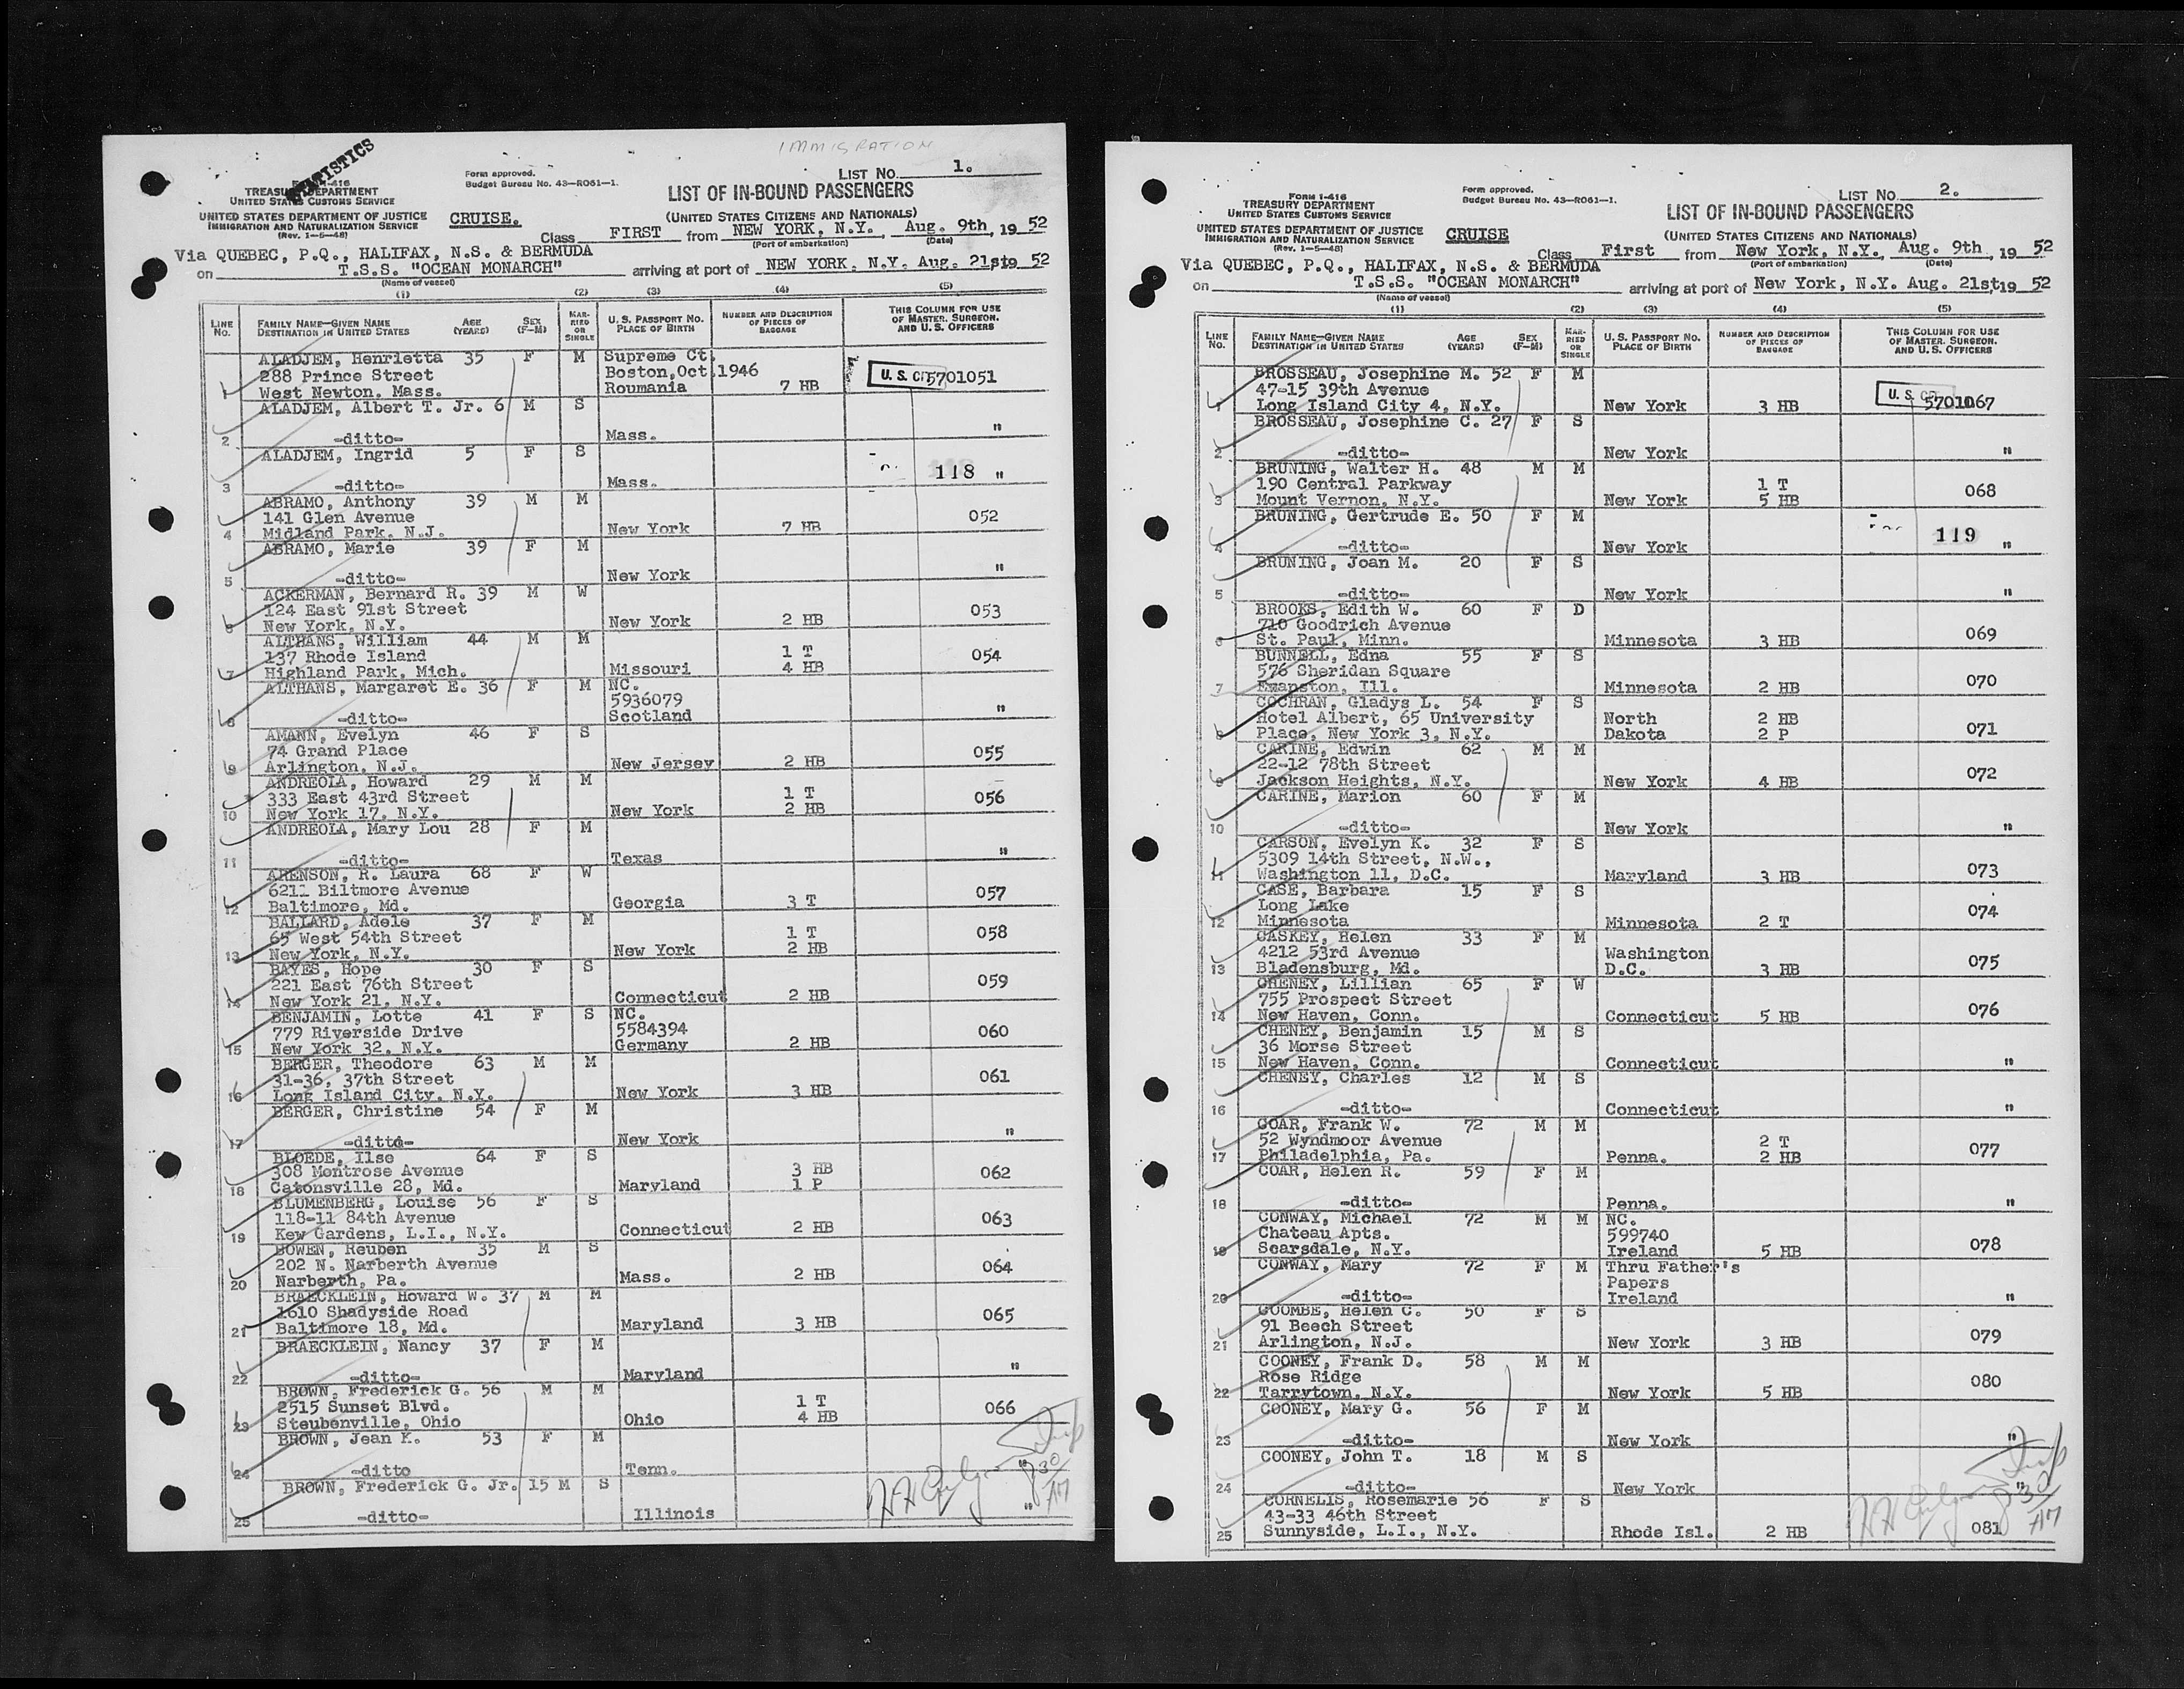 IMMIGRATION
STATISTICS
TREASURY DEPARTMENT
UNITED STATES CUSTOMS SERVICE
UNITED STATES DEPARTMENT OF JUSTICE
IMMIGRATION AND NATURALIZATION SERVICE
(Rev. 1-5-48)
Form approved.
Budget Bureau No. 43-R061-1.
CRUISE.
LIST No. 1.
LIST OF IN-BOUND PASSENGERS
(UNITED STATES CITIZENS AND NATIONALS)
Class FIRST from NEW YORK, N.Y., Aug. 9th, 19 52
(Port of embarkation) (Date)
Via QUEBEC, P.Q., HALIFAX, N.S. & BERMUDA
on T.S.S. "OCEAN MONARCH" arriving at port of NEW YORK, N.Y. Aug. 21st 19 52
(Name of vessel)
(1) (2) (3) (4) (5)
LINE No. FAMILY NAME—GIVEN NAME DESTINATION IN UNITED STATES AGE (YEARS) SEX (F-M) MARRIED OR SINGLE U. S. PASSPORT No. PLACE OF BIRTH NUMBER AND DESCRIPTION OF PIECES OF BAGGAGE THIS COLUMN FOR USE OF MASTER, SURGEON, AND U. S. OFFICERS
ALADJEM, Henrietta 35 F M Supreme Ct.
288 Prince Street Boston, Oct. 1946
1 West Newton, Mass. Roumania 7 HB U. S. CIT 5701051
ALADJEM, Albert T. Jr. 6 M S
2 -ditto- Mass. "
ALADJEM, Ingrid 5 F S
118 "
3 -ditto- Mass.
ABRAMO, Anthony 39 M M
141 Glen Avenue 052
4 Midland Park, N.J. New York 7 HB
ABRAMO, Marie 39 F M
5 -ditto- New York "
ACKERMAN, Bernard R. 39 M W
124 East 91st Street 053
6 New York, N.Y. New York 2 HB
ALTHANS, William 44 M M
137 Rhode Island 1 T 054
7 Highland Park, Mich. Missouri 4 HB
ALTHANS, Margaret E. 36 F M NC.
5936079
8 -ditto- Scotland "
AMANN, Evelyn 46 F S
74 Grand Place 055
9 Arlington, N.J. New Jersey 2 HB
ANDREOLA, Howard 29 M M
333 East 43rd Street 1 T 056
10 New York 17, N.Y. New York 2 HB
ANDREOLA, Mary Lou 28 F M
11 -ditto- Texas "
ARENSON, R. Laura 68 F W
6211 Biltmore Avenue 057
12 Baltimore, Md. Georgia 3 T
BALLARD, Adele 37 F M
65 West 54th Street 1 T 058
13 New York, N.Y. New York 2 HB
BAYES, Hope 30 F S
221 East 76th Street 059
14 New York 21, N.Y. Connecticut 2 HB
BENJAMIN, Lotte 41 F S NC.
779 Riverside Drive 5584394 060
15 New York 32, N.Y. Germany 2 HB
BERGER, Theodore 63 M M
31-36, 37th Street 061
16 Long Island City, N.Y. New York 3 HB
BERGER, Christine 54 F M
17 -ditto- New York "
BLOEDE, Ilse 64 F S
308 Montrose Avenue 3 HB 062
18 Catonsville 28, Md. Maryland 1 P
BLUMENBERG, Louise 56 F S
118-11 84th Avenue 063
19 Kew Gardens, L.I., N.Y. Connecticut 2 HB
BOWEN, Reuben 35 M S
202 N. Narberth Avenue 064
20 Narberth, Pa. Mass. 2 HB
BRAECKLEIN, Howard W. 37 M M
1610 Shadyside Road 065
21 Baltimore 18, Md. Maryland 3 HB
BRAECKLEIN, Nancy 37 F M
22 -ditto- Maryland "
BROWN, Frederick G. 56 M M
2515 Sunset Blvd. 1 T 066
23 Steubenville, Ohio Ohio 4 HB
BROWN, Jean K. 53 F M
24 -ditto Tenn. "
BROWN, Frederick G. Jr. 15 M S
25 -ditto- Illinois "
830 AM
FORM I-416
TREASURY DEPARTMENT
UNITED STATES CUSTOMS SERVICE
UNITED STATES DEPARTMENT OF JUSTICE
IMMIGRATION AND NATURALIZATION SERVICE
(Rev. 1-5-48)
Form approved.
Budget Bureau No. 43-R061-1.
CRUISE
LIST No. 2.
LIST OF IN-BOUND PASSENGERS
(UNITED STATES CITIZENS AND NATIONALS)
Class First from New York, N.Y., Aug. 9th, 19 52
(Port of embarkation) (Date)
Via QUEBEC, P.Q., HALIFAX, N.S. & BERMUDA
on T.S.S. "OCEAN MONARCH" arriving at port of New York, N.Y. Aug. 21st, 19 52
(Name of vessel)
(1) (2) (3) (4) (5)
LINE No. FAMILY NAME—GIVEN NAME DESTINATION IN UNITED STATES AGE (YEARS) SEX (F-M) MARRIED OR SINGLE U. S. PASSPORT No. PLACE OF BIRTH NUMBER AND DESCRIPTION OF PIECES OF BAGGAGE THIS COLUMN FOR USE OF MASTER, SURGEON, AND U. S. OFFICERS
BROSSEAU, Josephine M. 52 F M
47-15 39th Avenue
1 Long Island City 4, N.Y. New York 3 HB U. S. CIT 5701067
BROSSEAU, Josephine C. 27 F S
2 -ditto- New York "
BRUNING, Walter H. 48 M M
190 Central Parkway 1 T 068
3 Mount Vernon, N.Y. New York 5 HB
BRUNING, Gertrude E. 50 F M
119 "
4 -ditto- New York
BRUNING, Joan M. 20 F S
5 -ditto- New York "
BROOKS, Edith W. 60 F D
710 Goodrich Avenue 069
6 St. Paul, Minn. Minnesota 3 HB
BUNNELL, Edna 55 F S
576 Sheridan Square 070
7 Evanston, Ill. Minnesota 2 HB
COCHRAN, Gladys L. 54 F S
Hotel Albert, 65 University North 2 HB
8 Place, New York 3, N.Y. Dakota 2 P 071
CARINE, Edwin 62 M M
22-12 78th Street 072
9 Jackson Heights, N.Y. New York 4 HB
CARINE, Marion 60 F M
10 -ditto- New York "
CARSON, Evelyn K. 32 F S
5309 14th Street, N.W., 073
11 Washington 11, D.C. Maryland 3 HB
CASE, Barbara 15 F S
Long Lake 074
12 Minnesota Minnesota 2 T
CASKEY, Helen 33 F M
4212 53rd Avenue Washington 075
13 Bladensburg, Md. D.C. 3 HB
CHENEY, Lillian 65 F W
755 Prospect Street 076
14 New Haven, Conn. Connecticut 5 HB
CHENEY, Benjamin 15 M S
36 Morse Street
15 New Haven, Conn. Connecticut "
CHENEY, Charles 12 M S
16 -ditto- Connecticut "
COAR, Frank W. 72 M M
52 Wyndmoor Avenue 2 T 077
17 Philadelphia, Pa. Penna. 2 HB
COAR, Helen R. 59 F M
18 -ditto- Penna. "
CONWAY, Michael 72 M M NC.
Chateau Apts. 599740 078
19 Scarsdale, N.Y. Ireland 5 HB
CONWAY, Mary 72 F M Thru Father's
Papers
20 -ditto- Ireland "
COOMBE, Helen C. 50 F S
91 Beech Street 079
21 Arlington, N.J. New York 3 HB
COONEY, Frank D. 58 M M
Rose Ridge 080
22 Tarrytown, N.Y. New York 5 HB
COONEY, Mary G. 56 F M
23 -ditto- New York "
COONEY, John T. 18 M S
24 -ditto- New York "
CORNELIS, Rosemarie 56 F S
43-33 46th Street
25 Sunnyside, L.I., N.Y. Rhode Isl. 2 HB 081
830 AM